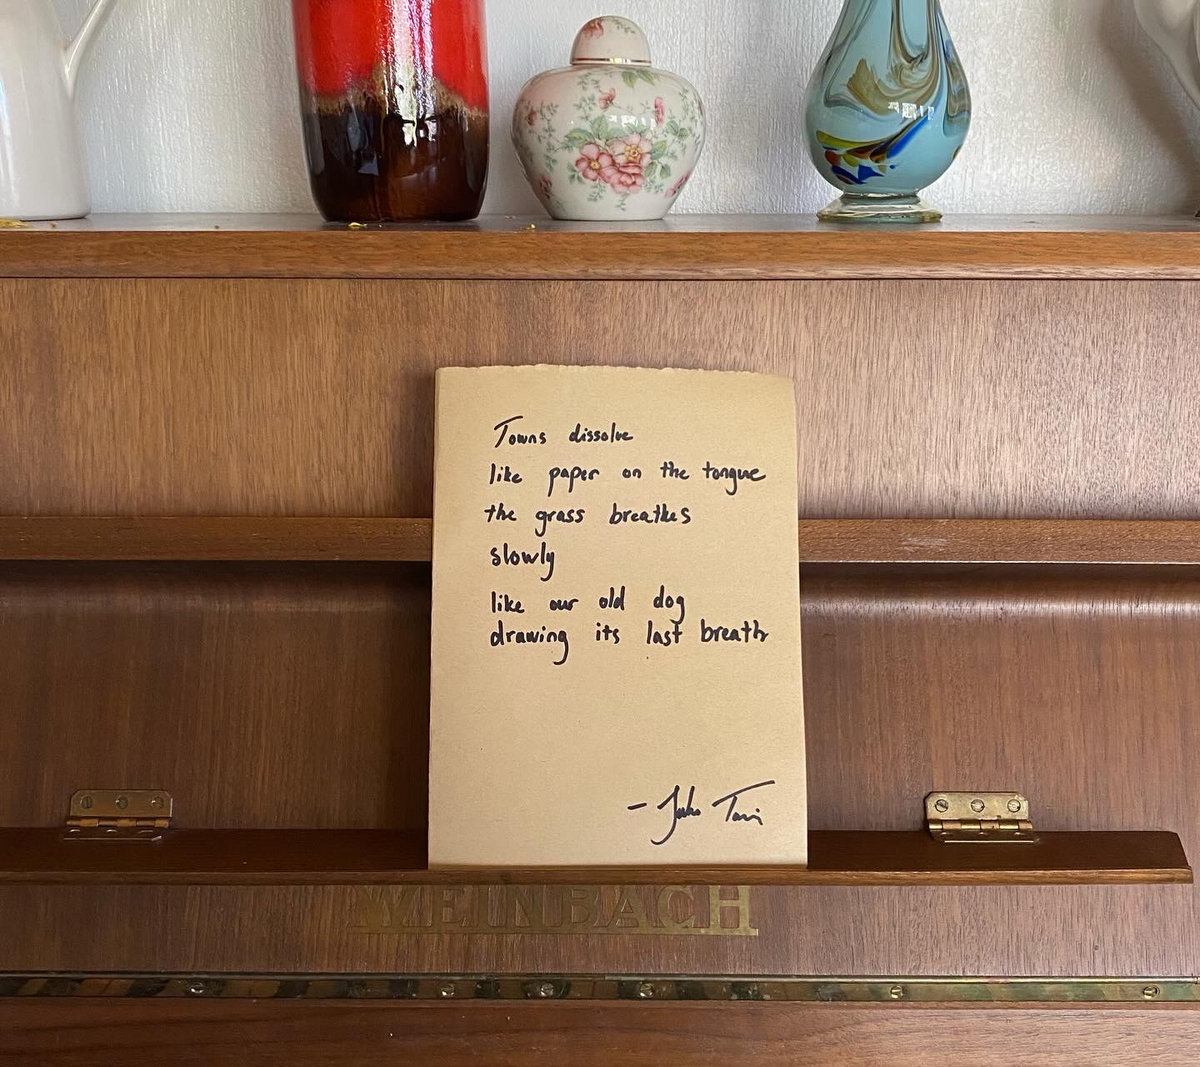 Towns dissolve
like paper on the tongue
the grass breathes
slowly
like our old dog
drawing its last breath
WEINBACH